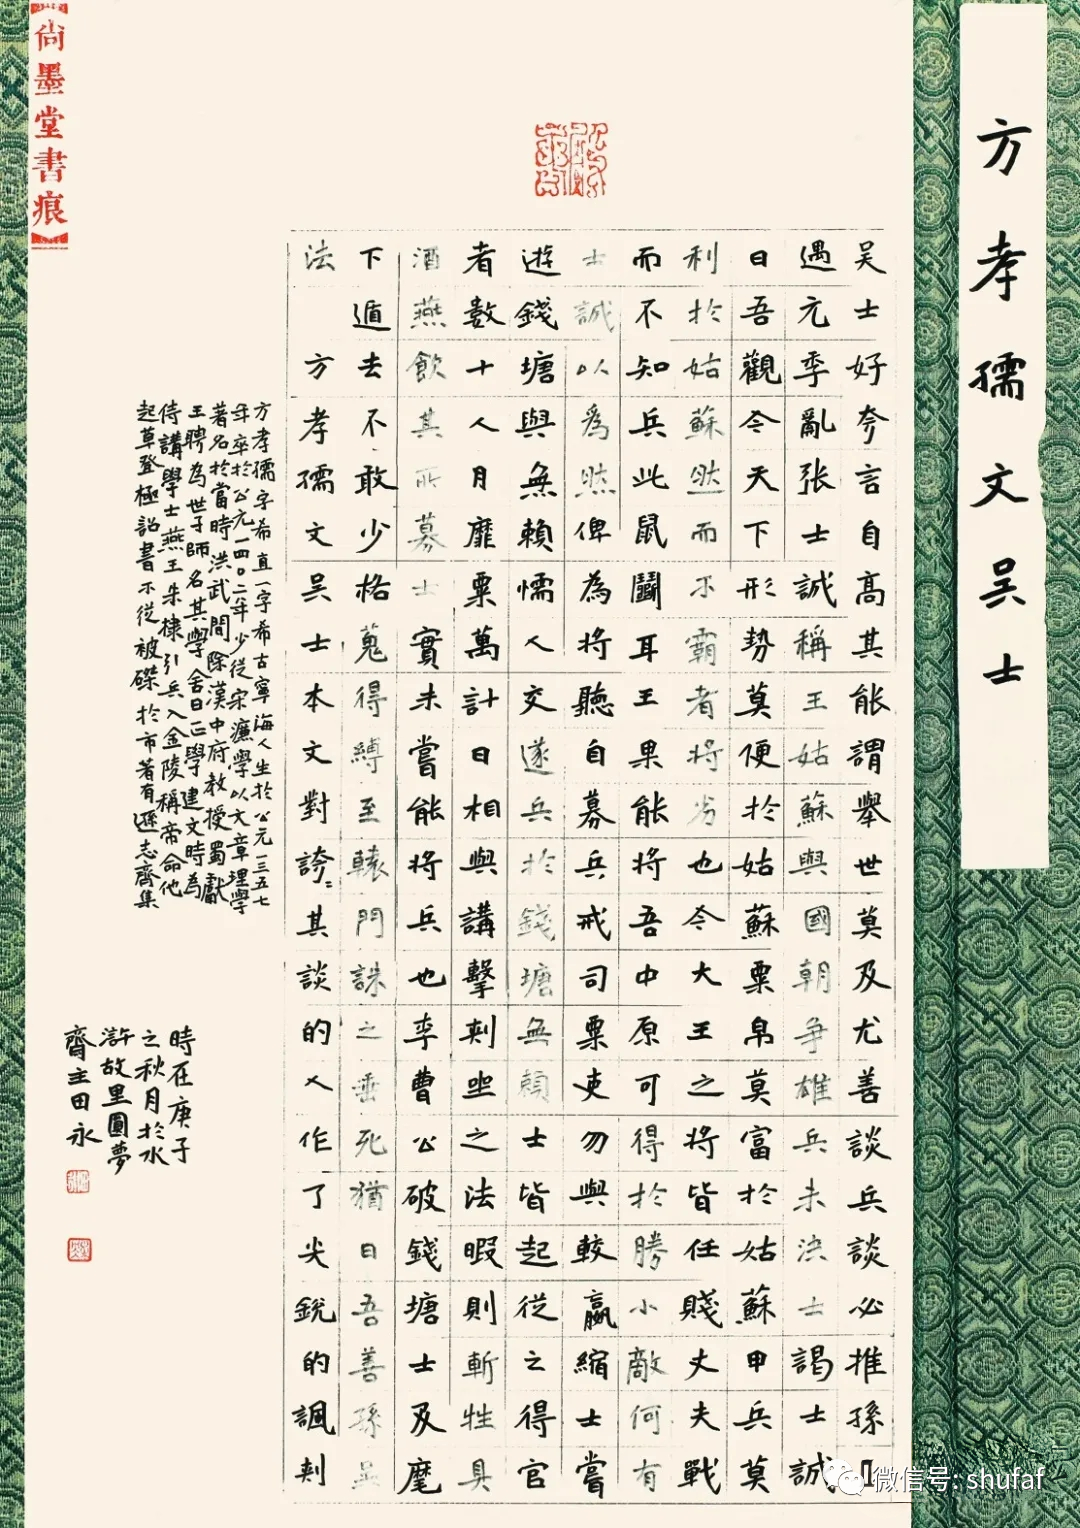 方孝孺文吴士
吴士好夸言自高其能謂舉世莫及尤善談兵談必推孫
遇元季亂張士誠稱王姑蘇與國朝争雄兵未決士謁士誠
曰吾觀今天下形勢莫便於姑蘇粟帛莫富於姑蘇甲兵莫
利於姑蘇然而不霸者将劣也今大王之将皆任賤丈夫戰
而不知兵此鼠鬭耳王果能将吾中原可得於勝小敵何有
士誠以為然俾為将聽自募兵戒司粟吏勿與較贏縮士嘗
遊錢塘與無賴懦人交遂兵於錢塘無賴士皆起從之得官
者數十人月靡粟萬計日相與講擊刺坐之法暇則斬牲具
酒燕飲其所募士實未嘗能将兵也李曹公破錢塘士及麾
下遁去不敢少格蒐得縛至轅門誅之垂死猶曰吾善孫吴
法 方孝孺文吴士本文對誇〻其談的人作了尖銳的諷刺
方孝孺字希直一字希古寧海人生於公元一三五七
年卒於公元一四〇二年少從宋濂學以文章理學
著名於當時洪武間除漢中府教授蜀獻
王聘為世子師名其學舍曰正學建文時為
侍講學士燕王朱棣引兵入金陵稱帝命他
起草登極詔書不從被磔於市著有遜志齋集
時在庚子
之秋月於水
滸故里圓夢
齋主田永
【尚墨堂書痕】
微信号: shufaf